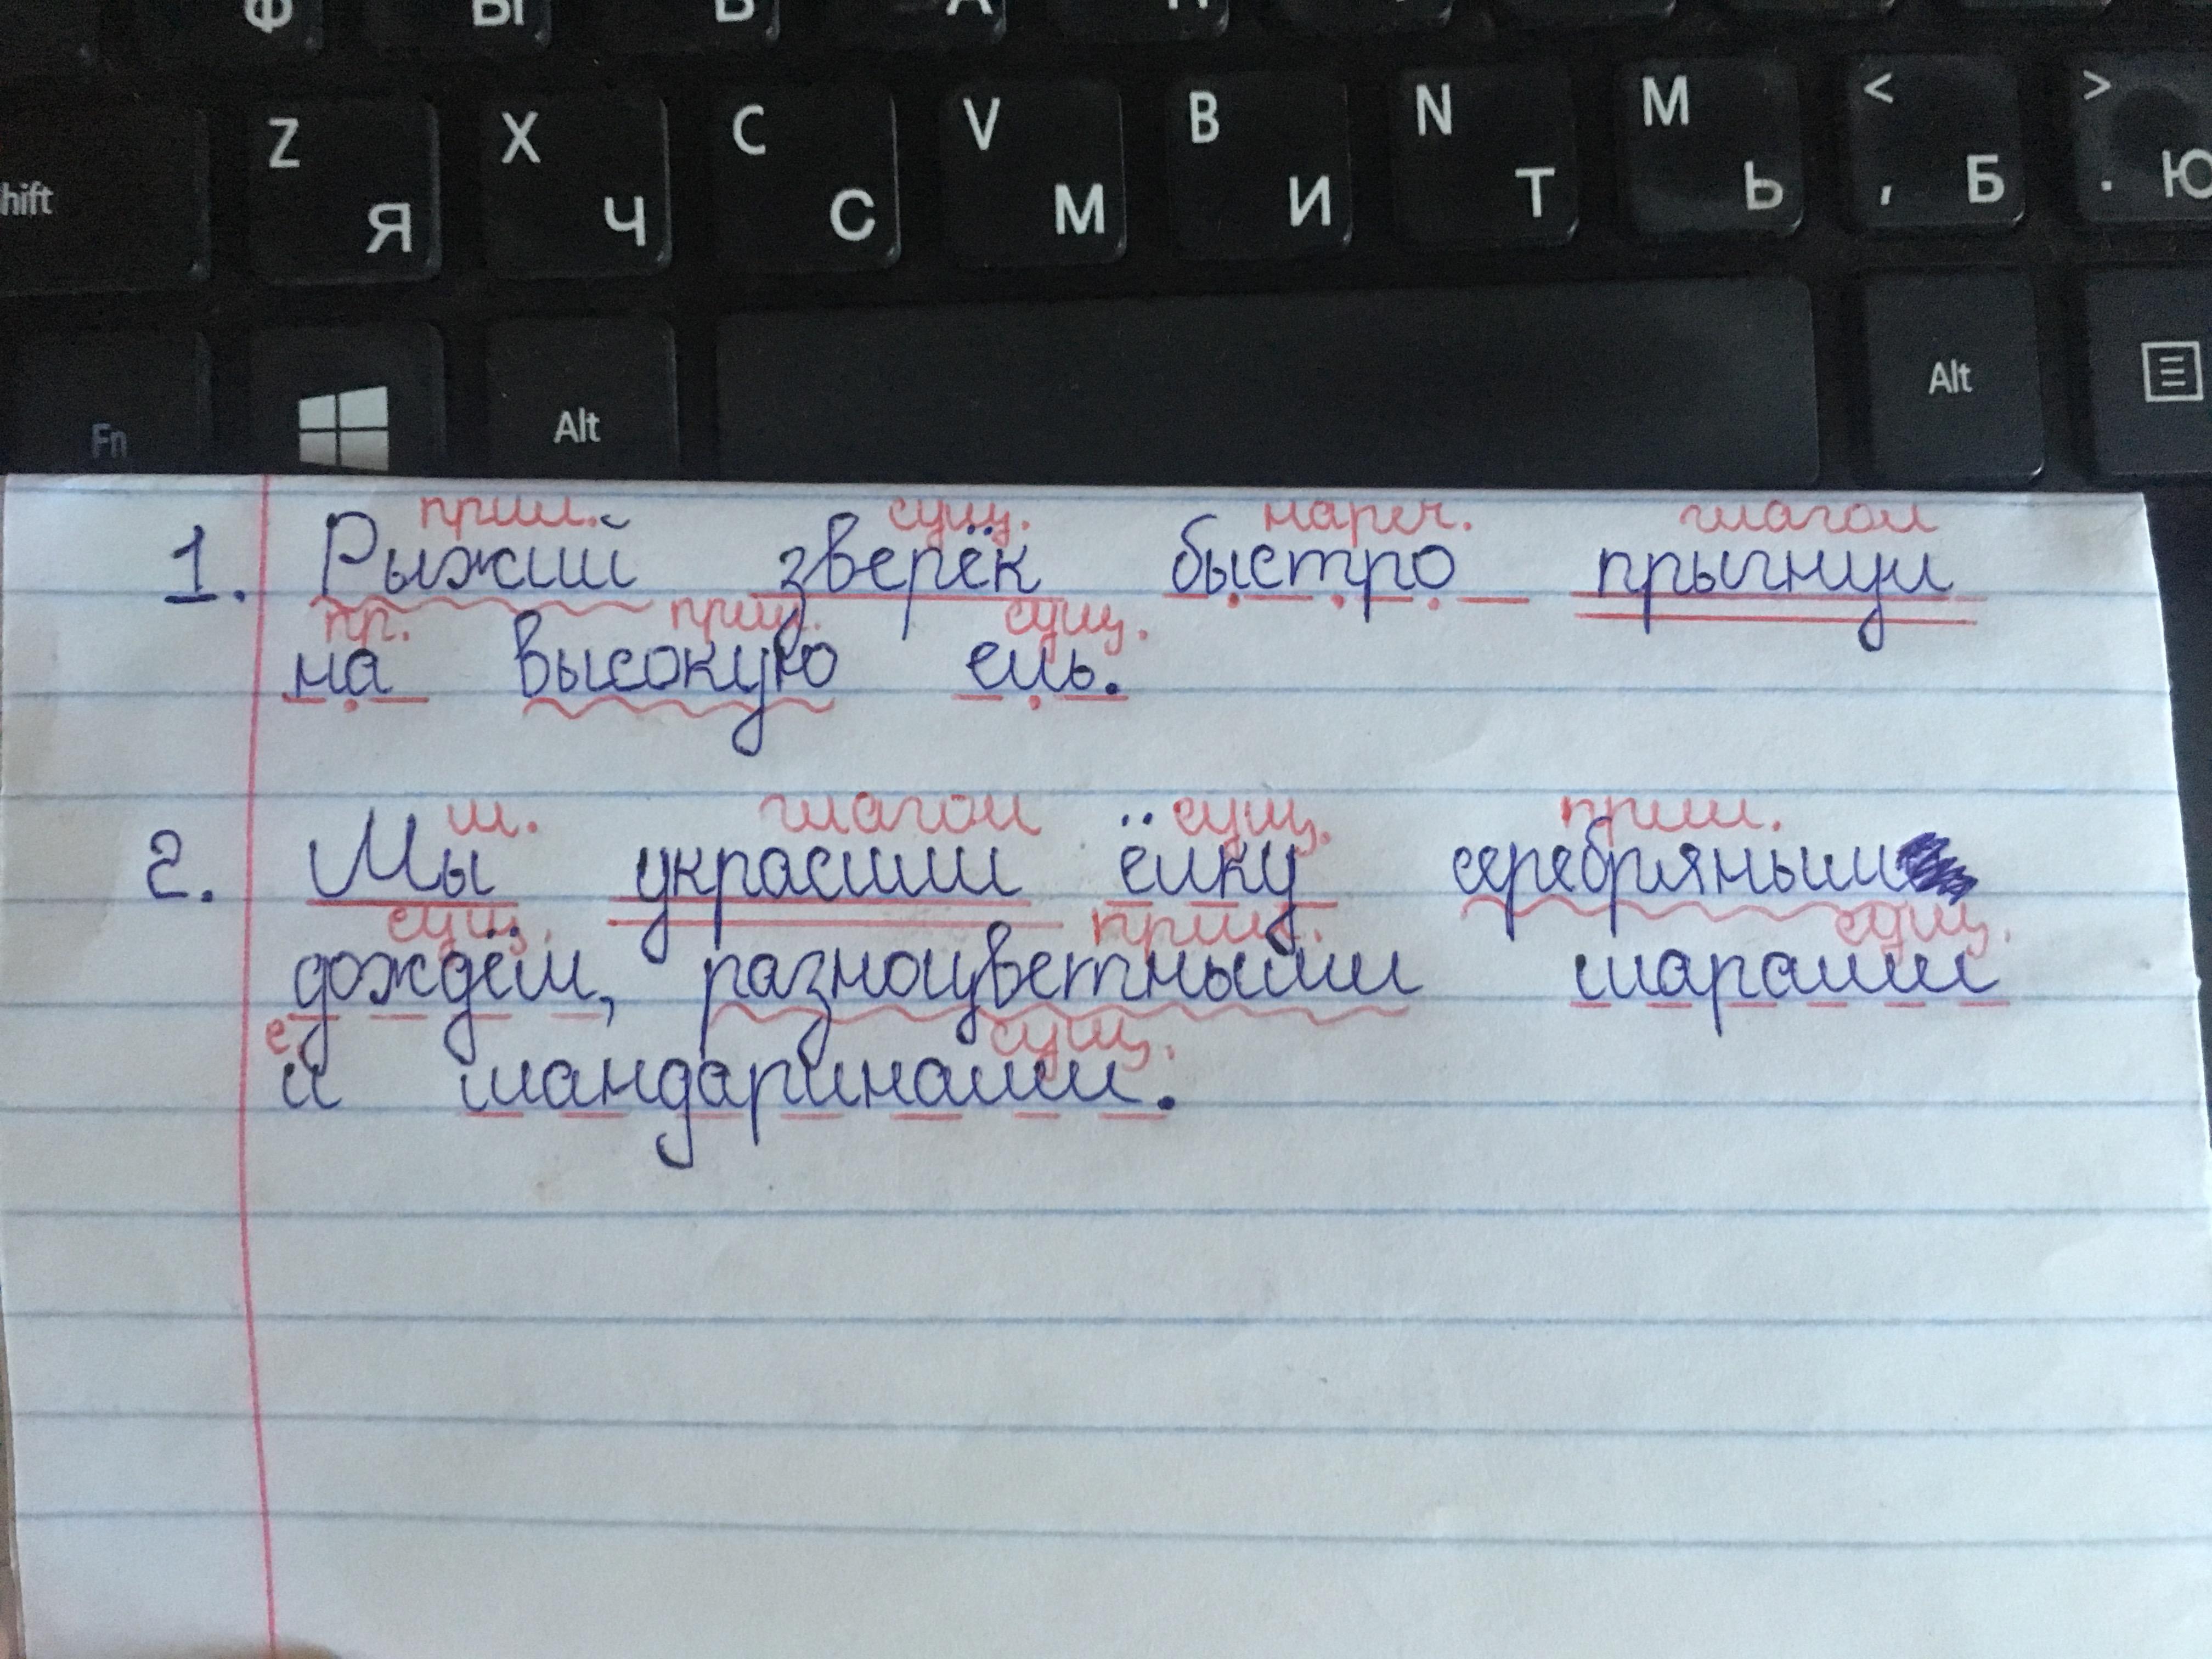 Ф Ы В А П
Z X C V B N M < >
hift Я Ч С М И Т Ь , Б . Ю
Fn Alt Alt
прил. сущ. нареч. глагол
1. Рыжий зверёк быстро прыгнул
пр. прил. сущ.
на высокую ель.
м. глагол сущ. прил.
2. Мы украсили ёлку серебряным
сущ. прил. сущ.
дождём, разноцветными шарами
с. сущ.
и мандаринами.